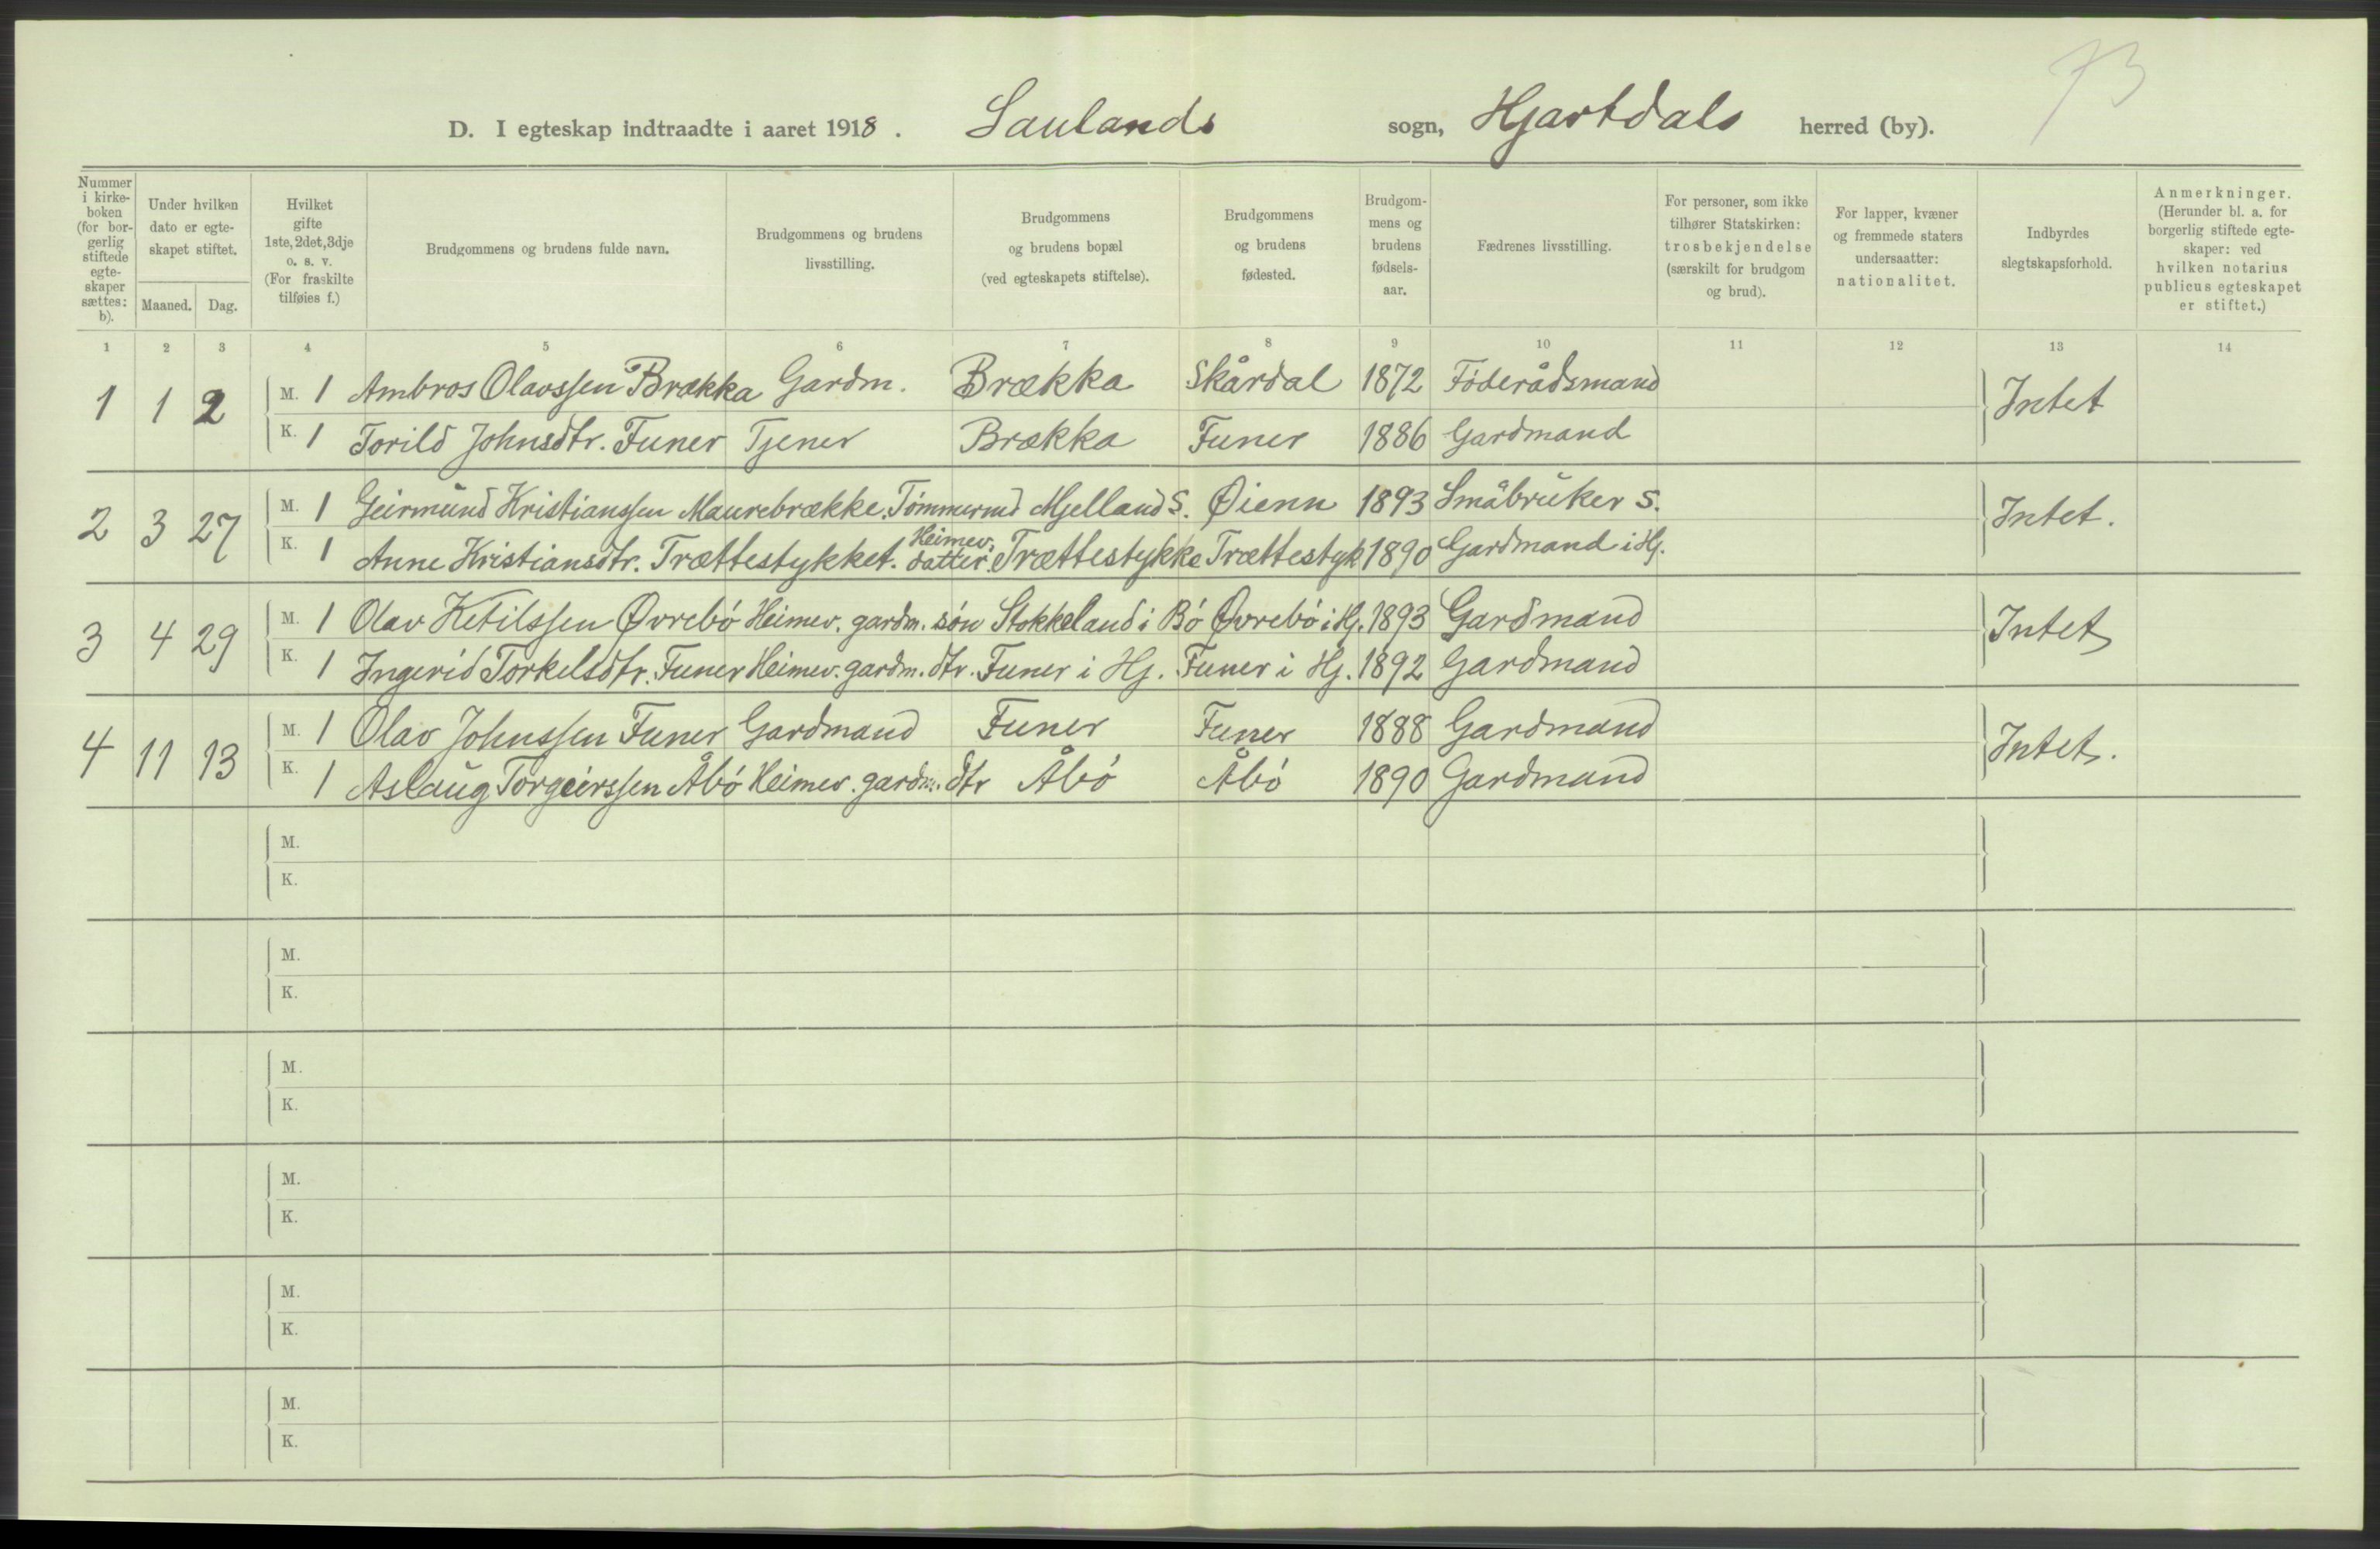 73
D. I egteskap indtraadte i aaret 1918 . Saulands sogn, Hjartdals herred (by).
Nummer i kirke- boken (for bor- gerlig stiftede egte- skaper sættes: b).
Under hvilken dato er egte- skapet stiftet.
Maaned. Dag.
Hvilket gifte 1ste, 2det, 3dje o. s. v. (For fraskilte tilføies f.)
Brudgommens og brudens fulde navn.
Brudgommens og brudens livsstilling.
Brudgommens og brudens bopæl (ved egteskapets stiftelse).
Brudgommens og brudens fødested.
Brudgom- mens og brudens fødsels- aar.
Fædrenes livsstilling.
For personer, som ikke tilhører Statskirken: trosbekjendelse (særskilt for brudgom og brud).
For lapper, kvæner og fremmede staters undersaatter: nationalitet.
Indbyrdes slegtskapsforhold.
Anmerkninger. (Herunder bl. a. for borgerlig stiftede egte- skaper: ved hvilken notarius publicus egteskapet er stiftet.)
1 2 3 4 5 6 7 8 9 10 11 12 13 14
1 1 2 M. 1 Ambros Olavssen Brækka Gardm. Brækka Skårdal 1872 Föderådsmand Intet
K. 1 Torild Johnsdtr. Funer Tjener Brækka Funer 1886 Gardmand
2 3 27 M. 1 Geirmund Kristianssen Maurebrække. Tömmermd Mjelland S. Øienn 1893 Småbruker S. Intet.
K. 1 Anne Kristiansdtr. Trættestykket. Heimev. datter. Trættestykke Trættestyk 1890 Gardmand i Hj.
3 4 29 M. 1 Olav Ketilssen Øvrebó Heimev. gardm. són Stokkeland i Bó Øvrebó i Hj. 1893 Gardmand Intet
K. 1 Ingerid Torkelsdtr. Funer Heimev. gardm. dtr. Funer i Hj. Funer i Hj. 1892 Gardmand
4 11 13 M. 1 Olav Johnssen Funer Gardmand Funer Funer 1888 Gardmand Intet.
K. 1 Aslaug Torgeirssen Åbó Heimev. gardm. dtr Åbó Åbó 1890 Gardmand
M.
K.
M.
K.
M.
K.
M.
K.
M.
K.
M.
K.